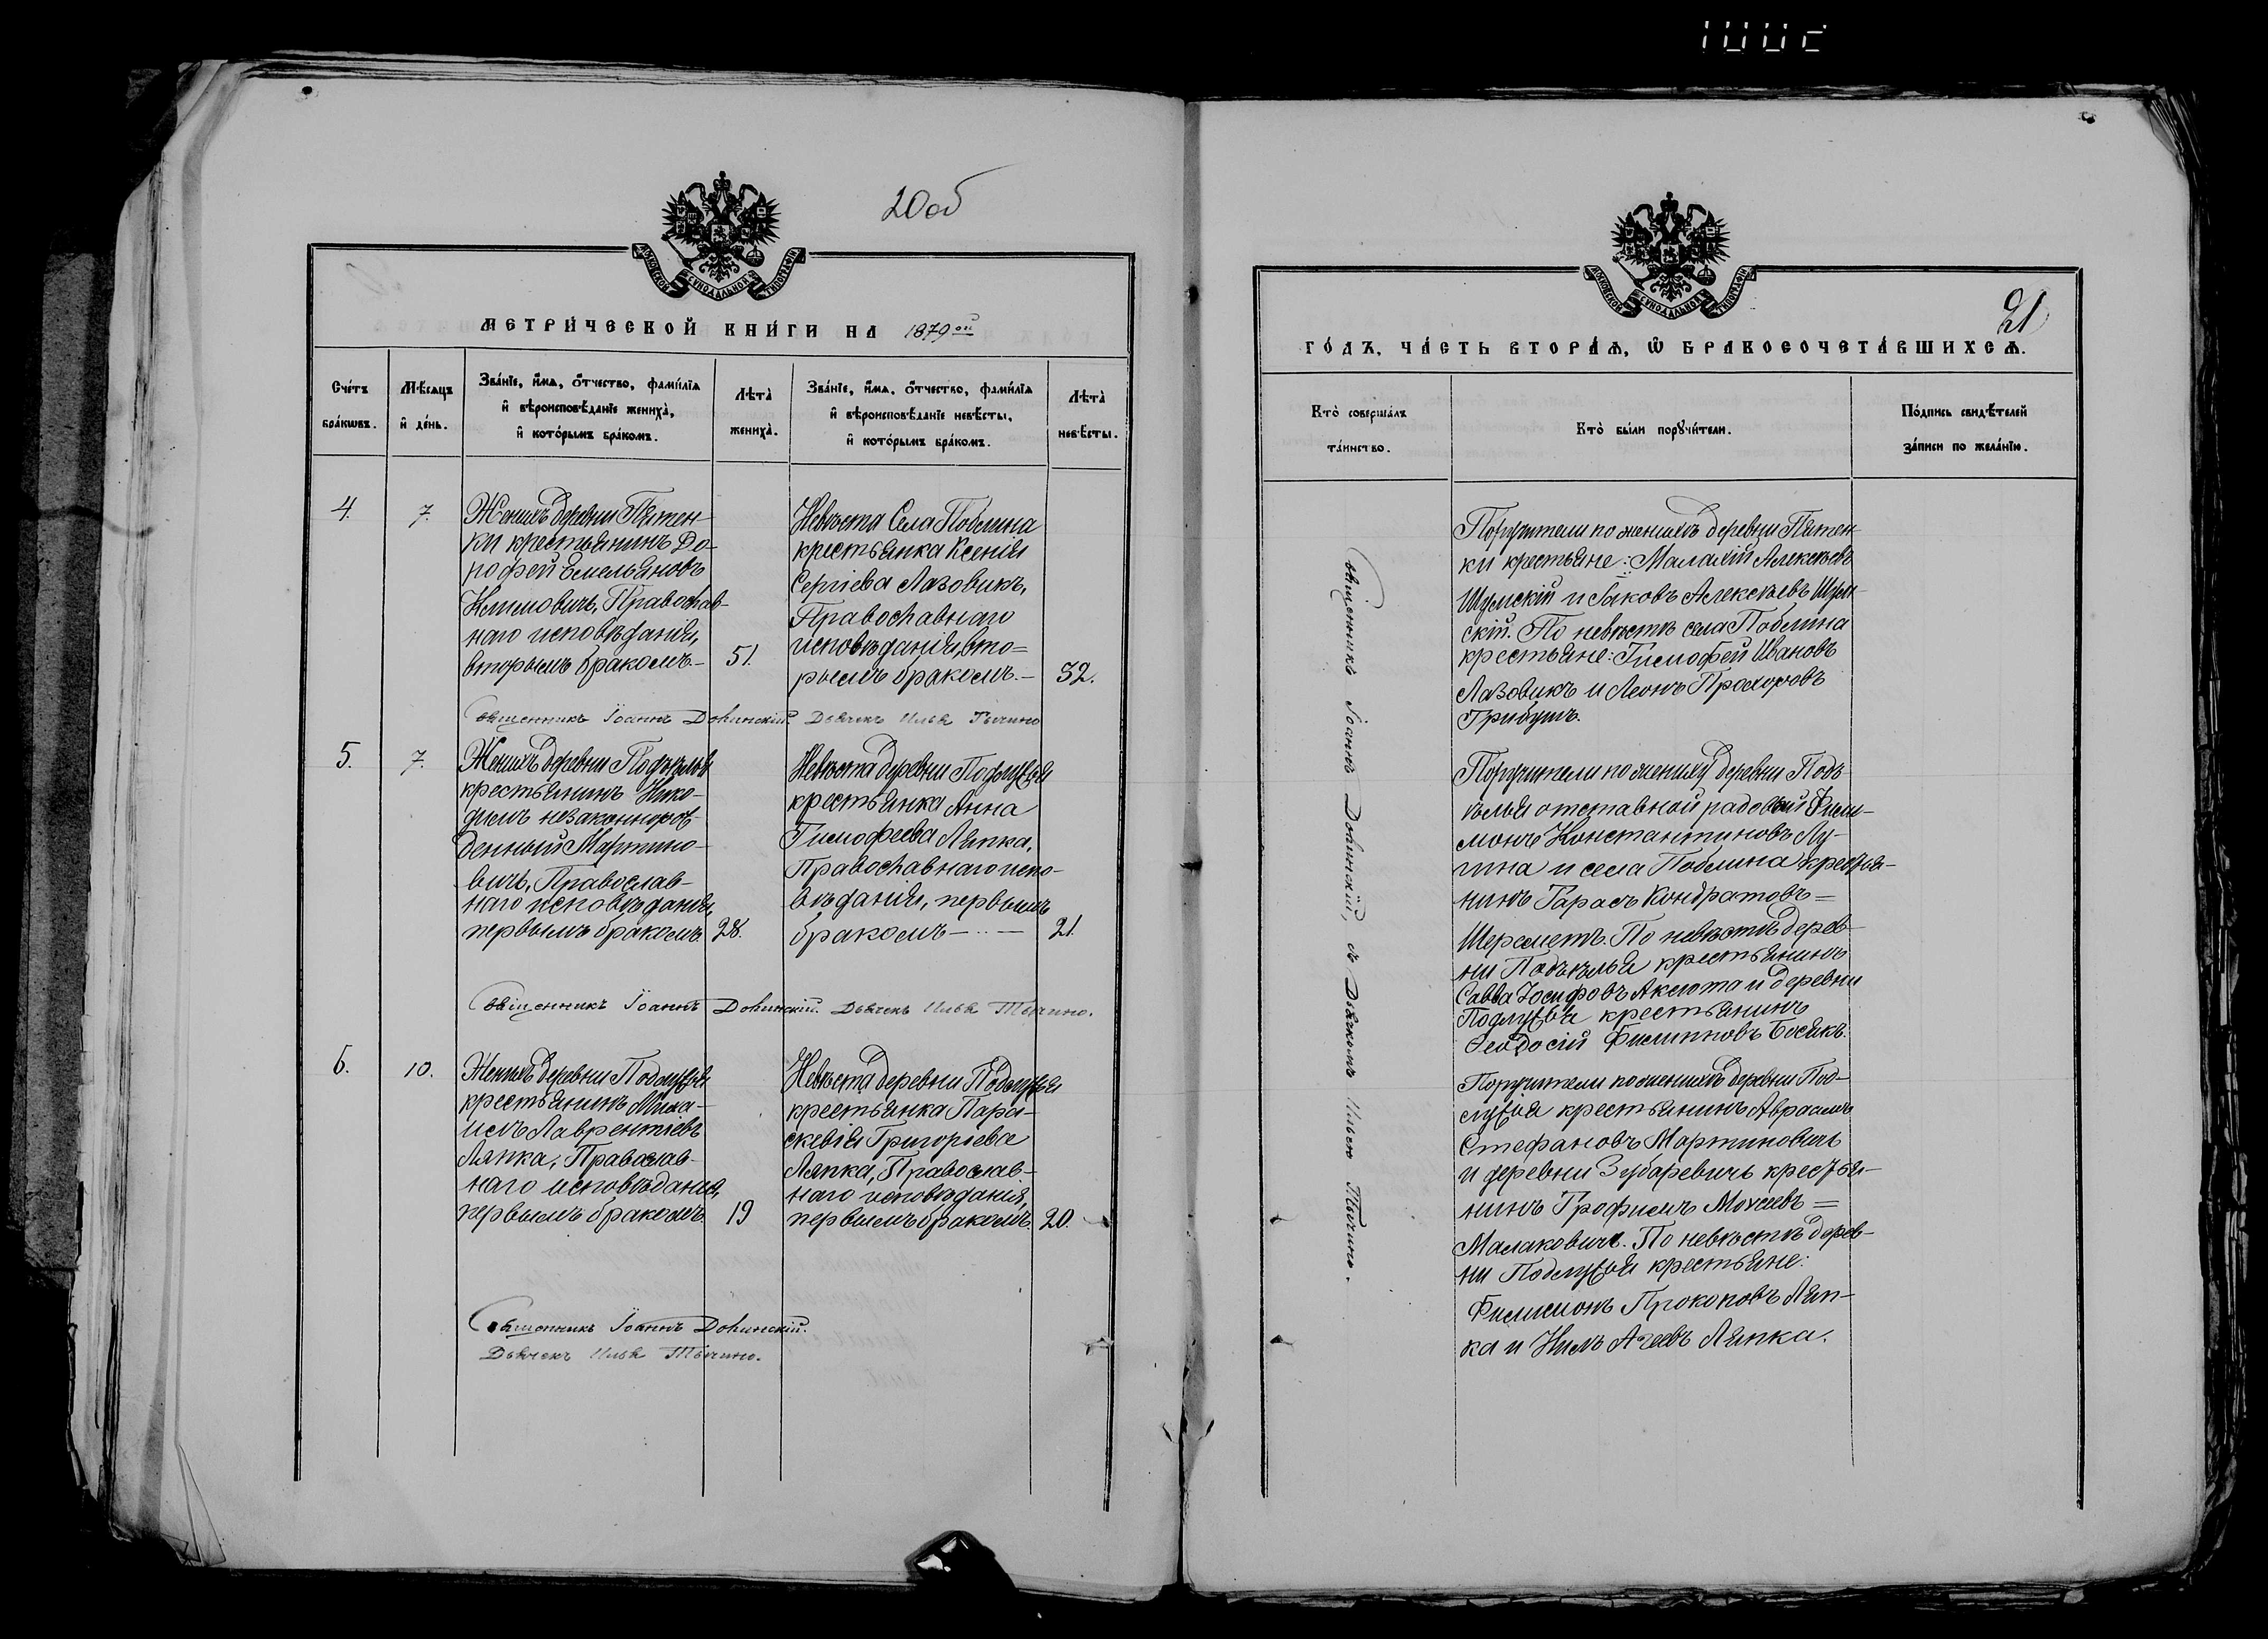 20об
МОСКОВСКОЙ СѴНОДАЛЬНОЙ ТИПОГРАФІИ
МЕТРИ́ЧЕСКОЙ КНИ́ГИ НА 1879ой
Сче́тъ бра́кωвъ.
Мѣ́сяцъ и҆ де́нь.
Зва́нїе, и҆́мѧ, ѻ҆́тчество, фами́лїѧ
и҆ вѣроисповѣ́данїе жениха̀,
и҆ кото́рымъ бра́комъ.
Лѣ́та̀ жениха̀.
Зва́нїе, и҆́мѧ, ѻ҆́тчество, фами́лїѧ
и҆ вѣроисповѣ́данїе невѣ́сты,
и҆ кото́рымъ бра́комъ.
Лѣ́та̀ невѣ́сты.
4.
7.
Женихъ деревни Пятен-
ки крестьянинъ До-
рофей Емельяновъ
Климовичъ, Православ-
наго исповѣданія,
вторымъ бракомъ.-
51.
Невѣста Села Поблина
крестьянка Ксенія
Сергіева Лазовикъ,
Православнаго
исповѣданія, вто=
рымъ бракомъ.-
32.
Священникъ Іоаннъ Докинскій. Дьячекъ Илья Тычино
5.
7.
Женихъ деревни Подъелья
крестьянинъ Нико-
димъ незаконнорож-
денный Мартино-
вичъ, Православ-
наго исповѣданія,
первымъ бракомъ.
28.
Невѣста деревни Подлужья
крестьянка Анна
Тимофеева Ляпка,
Православнаго испо-
вѣданія, первымъ
бракомъ
21.
Священникъ Іоаннъ Докинскій. Дьячекъ Илья Тычино.
6.
10.
Женихъ деревни Подлужья
крестьянинъ Миха-
илъ Лаврентіевъ
Ляпка, Православ-
наго исповѣданія,
первымъ бракомъ.
19
Невѣста деревни Подлужья
крестьянка Пара-
скевія Григоріева
Ляпка, Православ-
наго исповѣданія,
первымъ бракомъ.
20.
Священникъ Іоаннъ Докинскій.
Дьячекъ Илья Тычино.
МОСКОВСКОЙ СѴНОДАЛЬНОЙ ТИПОГРАФІИ
21
ГО́ДЪ, ЧА́СТЬ ВТОРА́Ѧ, Ѽ БРАКОСОЧЕТА́ВШИХСѦ.
Кто̀ соверша́лъ
та́инство.
Кто̀ бы́ли порꙋчи́тели.
По́дпись свидѣ́телей
за́писи по жела́нїю.
Священникъ Іоаннъ Докинскій, съ Дьячкомъ Ильею Тычино.
Поручители по женихѣ деревни Пятен-
ки крестьяне: Малахій Алексѣевъ
Шумскій и Іаковъ Алексѣевъ Шум-
скій. По невѣстѣ села Поблина
крестьяне: Тимофей Ивановъ
Лазовикъ и Леонъ Прохоровъ
Грибушъ.
Поручители по жениху деревни Подъ-
ѣлья отставной рядовой Фили-
монъ Константиновъ Лу-
гина и села Поблина крестья-
нинъ Тарасъ Кондратовъ=
Шереметъ. По невѣстѣ дерев-
ни Подъѣлья крестьянинъ
Савва Іосифовъ Аксюта и деревни
Подлужья крестьянинъ
Ѳеодосій Филипповъ Босякъ.
Поручители по женихѣ деревни Под-
лужья крестьянинъ Авраамъ
Стефановъ Мартиновичъ
и деревни Зубаревичъ крестья-
нинъ Трофимъ Мохеевъ=
Малаковичъ. По невѣстѣ дерев-
ни Подлужья крестьяне:
Филимонъ Прокоповъ Ляп-
ка и Нилъ Агеевъ Ляпка.